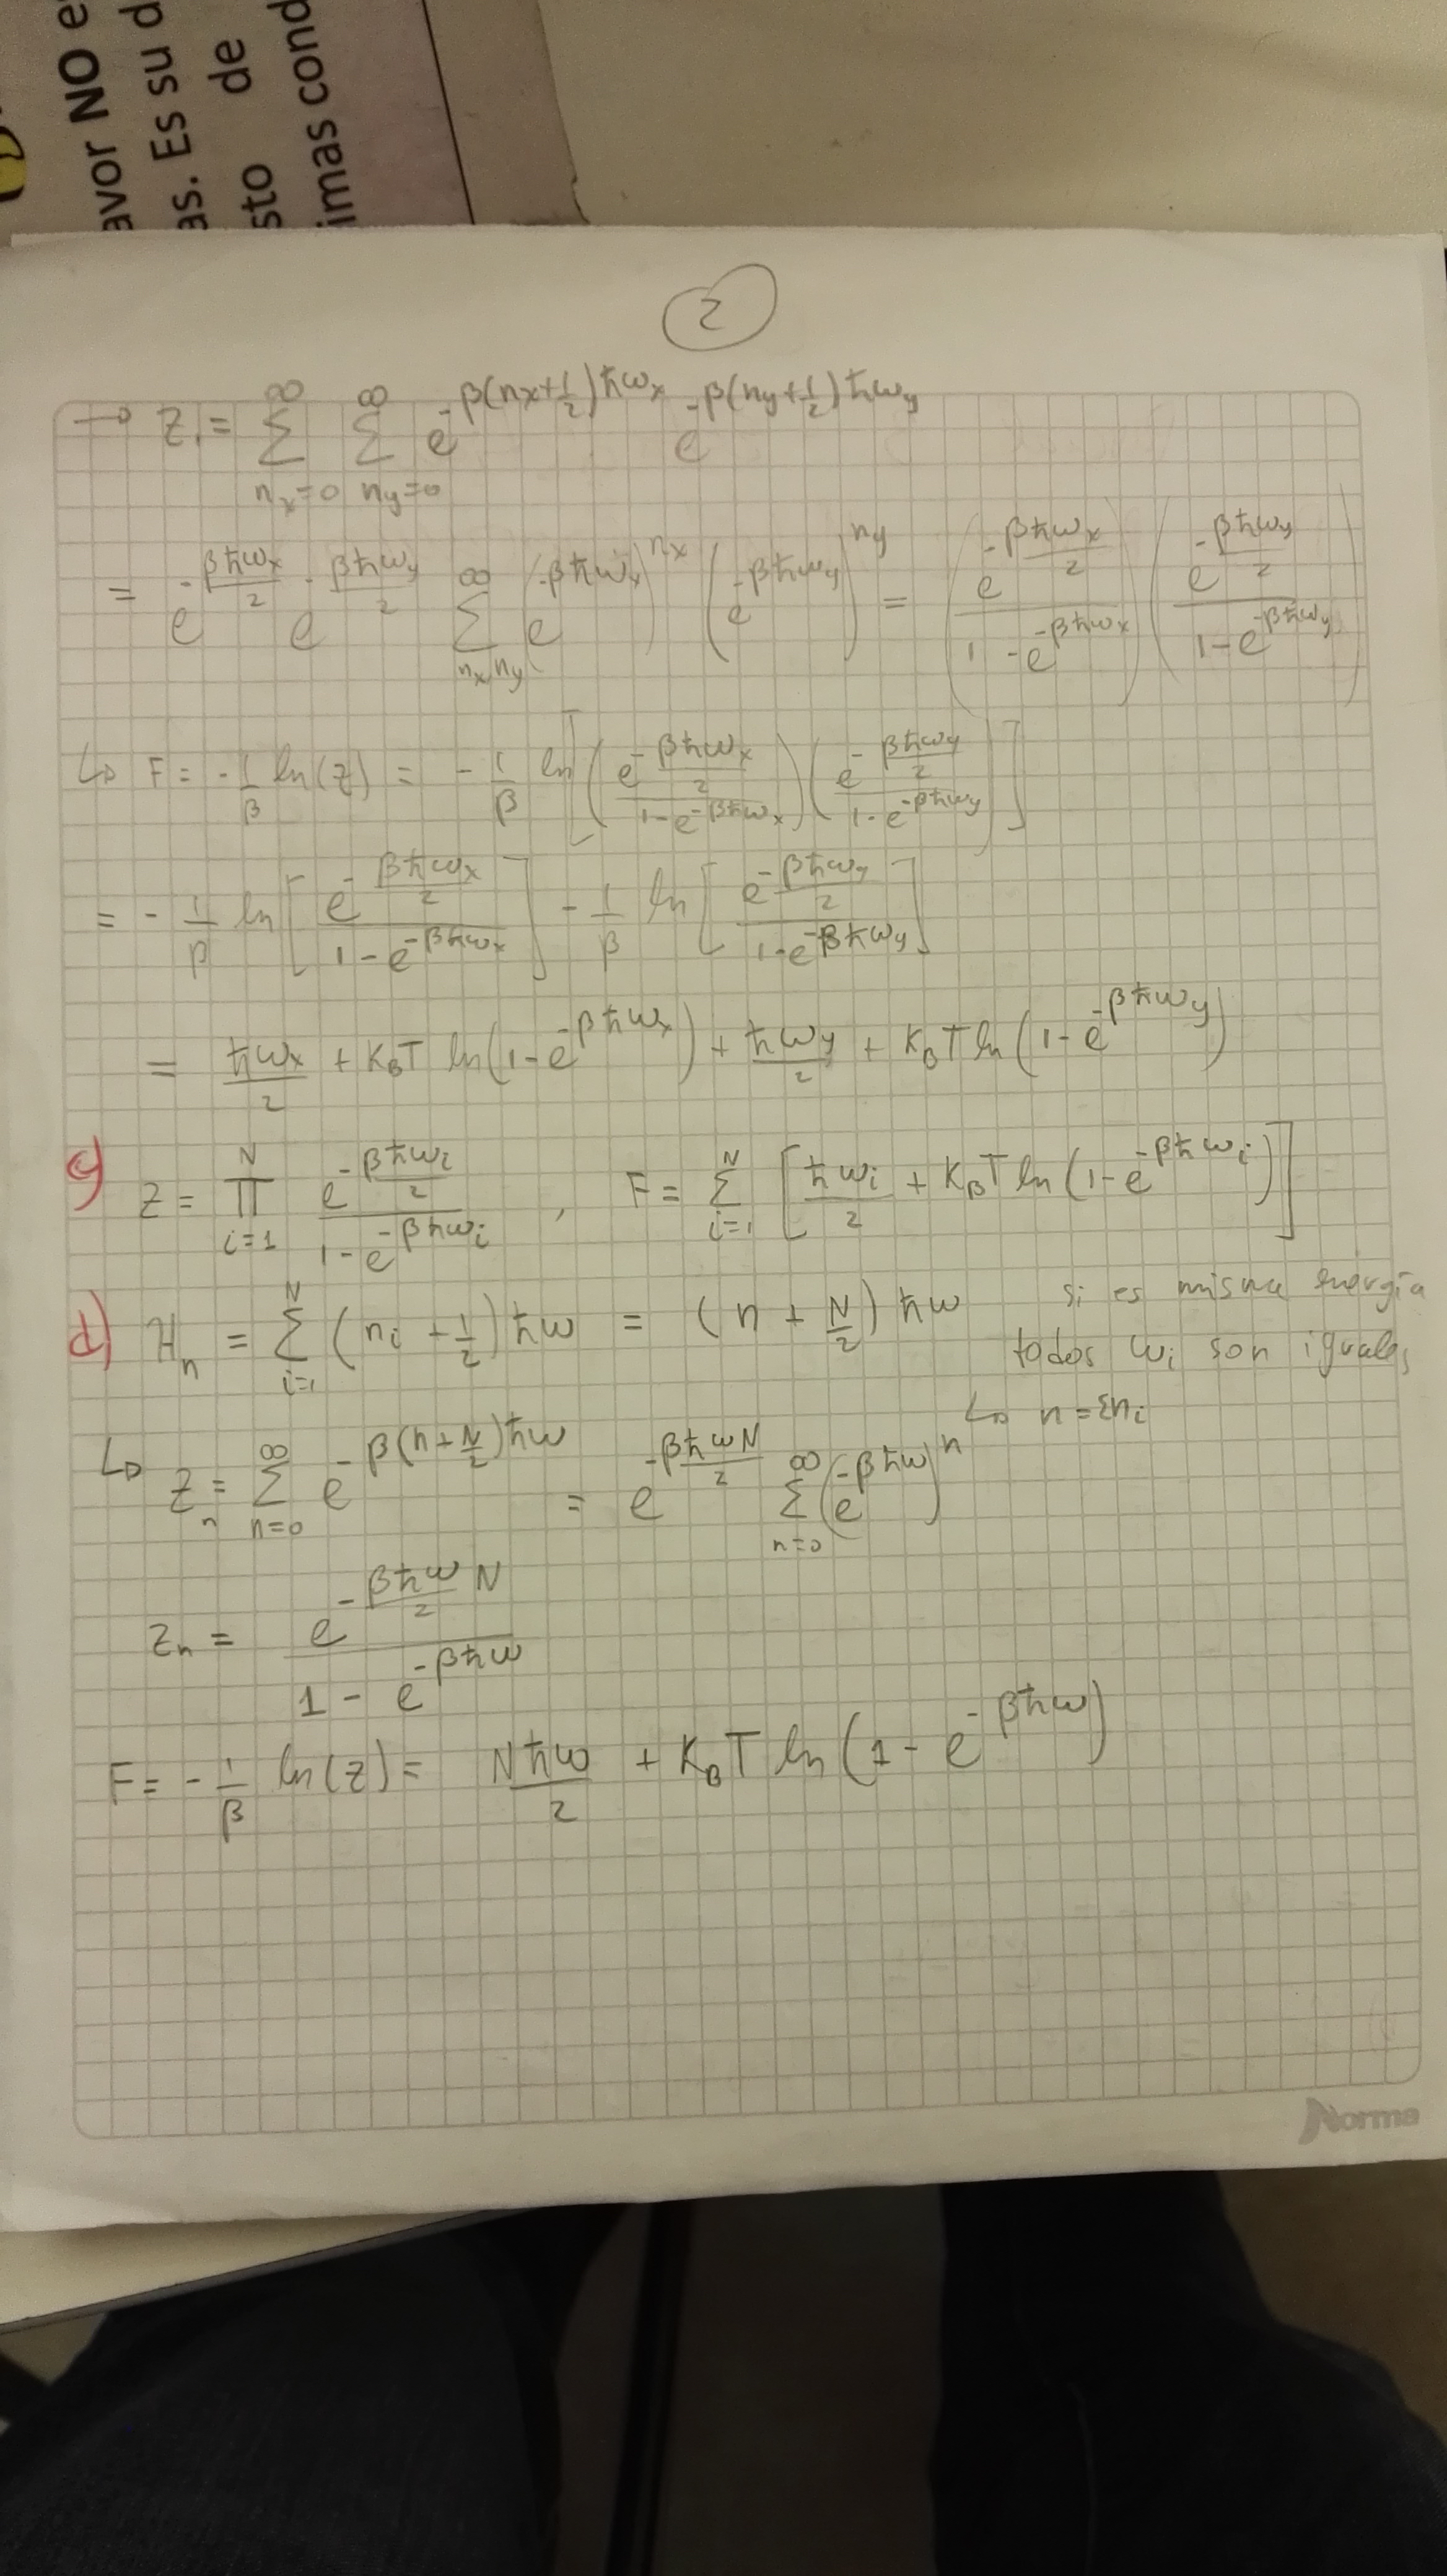 avor NO e
as. Es su d
sto de
imas cond
2
→ Z₁ = ∑_{nₓ=0}^{∞} ∑_{n_y=0}^{∞} e^{-β(nₓ+1/2)ħωₓ} e^{-β(n_y+1/2)ħω_y}
= e^{-βħωₓ/2} e^{-βħω_y/2} ∑_{nₓ n_y}^{∞} (e^{-βħωₓ})^{nₓ} (e^{-βħω_y})^{n_y} = (e^{-βħωₓ/2} / (1-e^{-βħωₓ})) (e^{-βħω_y/2} / (1-e^{-βħω_y}))
↳ F = -1/β ln(Z) = -1/β ln[(e^{-βħωₓ/2} / (1-e^{-βħωₓ})) (e^{-βħω_y/2} / (1-e^{-βħω_y}))]
= -1/β ln[e^{-βħωₓ/2} / (1-e^{-βħωₓ})] - 1/β ln[e^{-βħω_y/2} / (1-e^{-βħω_y})]
= ħωₓ/2 + K_BT ln(1-e^{-βħωₓ}) + ħω_y/2 + K_BT ln(1-e^{-βħω_y})
c) Z = ∏_{i=1}^{N} e^{-βħωᵢ/2} / (1-e^{-βħωᵢ}) , F = ∑_{i=1}^{N} [ħωᵢ/2 + K_BT ln(1-e^{-βħωᵢ})]
d) Hₙ = ∑_{i=1}^{N} (nᵢ + 1/2) ħω = (n + N/2) ħω
si es misma energía
todos ωᵢ son iguales
↳ n = Σnᵢ
↳ Zₙ = ∑_{n=0}^{∞} e^{-β(n+N/2)ħω} = e^{-βħωN/2} ∑_{n=0}^{∞} (e^{-βħω})^n
Zₙ = e^{-βħω/2 N} / (1 - e^{-βħω})
F = -1/β ln(Z) = Nħω/2 + K_BT ln(1 - e^{-βħω})
Norma